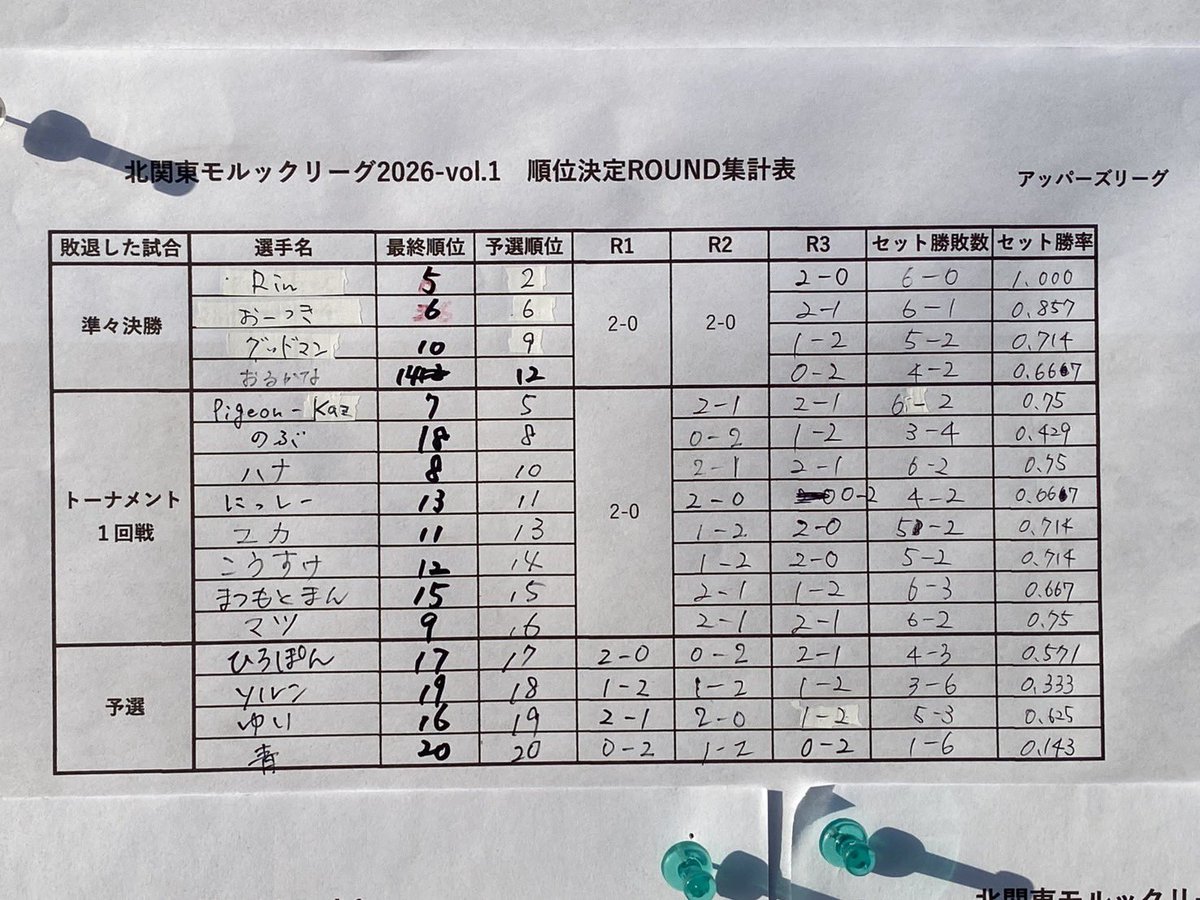 北関東モルックリーグ2026-vol.1 順位決定ROUND集計表
アッパーズリーグ
敗退した試合 選手名 最終順位 予選順位 R1 R2 R3 セット勝敗数 セット勝率
準々決勝 2-0 2-0
Rin 5 2 2-0 6-0 1.000
おーつき 6 6 2-1 6-1 0.857
グッドマン 10 9 1-2 5-2 0.714
おるがな 14 12 0-2 4-2 0.667
トーナメント
1回戦
2-0
Pigeon-Kaz 7 5 2-1 2-1 6-2 0.75
のぶ 18 8 0-2 1-2 3-4 0.429
ハナ 8 10 2-1 2-1 6-2 0.75
にっしー 13 11 2-0 0-2 4-2 0.667
ユカ 11 13 1-2 2-0 5-2 0.714
こうすけ 12 14 1-2 2-0 5-2 0.714
まつもとまん 15 15 2-1 1-2 6-3 0.667
マツ 9 16 2-1 2-1 6-2 0.75
予選
ひろぽん 17 17 2-0 0-2 2-1 4-3 0.571
ソルレン 19 18 1-2 1-2 1-2 3-6 0.333
ゆい 16 19 2-1 2-0 1-2 5-3 0.625
青 20 20 0-2 1-2 0-2 1-6 0.143
北関東モルックリー